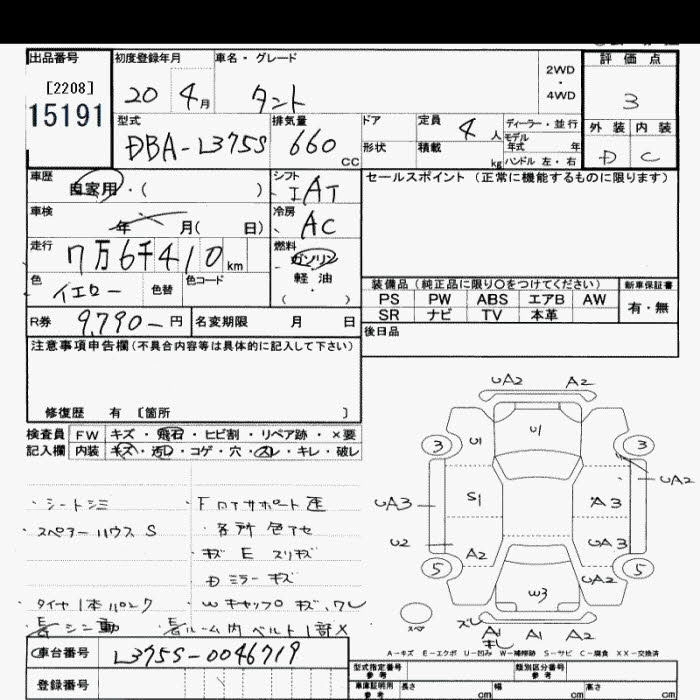 出品番号 初度登録年月 車名・グレード 2WD・4WD 評価点
[2208]
15191
20 4月 タント 3
型式 排気量 ドア 定員 4人 ディーラー・並行 外装 内装
DBA-L375S 660 CC 形状 積載 kg モデル年式 年 ハンドル 左・右 D C
車歴 自家用・( ) シフト IAT セールスポイント (正常に機能するものに限ります)
車検 年 月( 日) 冷房 AC
走行 7万6千410 km 燃料 ガソリン
軽油
( )
色 イエロー 色替 色コード
装備品 (純正品に限り○をつけてください) 新車保証書
PS PW ABS エアB AW 有・無
SR ナビ TV 本革
R券 9,790-円 名変期限 月 日
後日品
注意事項申告欄(不具合内容等は具体的に記入して下さい)
修復歴 有 〔箇所 〕
検査員 FW キズ・飛石・ヒビ割・リペア跡・×要
記入欄 内装 キズ・汚レ・コゲ・穴・スレ・キレ・破レ
・シートシミ
・スペアーハウス S
・各所色アセ
・キズ E スリキズ
Dミラーキズ
・タイヤ1本パンク
・Wキャップ キズ、ワレ
シミ動
ルーム内ベルト1部X
UA2 A2
3 U1 U1 3
UA2
UA3 S1 A3
U2 A2 UA3
5 UA2 5
W3
スペア スレ A1 A1 A2
A-キズ E-エクボ U-凹み W-補修跡 S-サビ C-腐食 XX-交換済
車台番号 L375S-0046719
登録番号
型式指定番号 参考 類別区分番号 参考
車庫証明用 参考 長さ cm 幅 cm 高さ cm